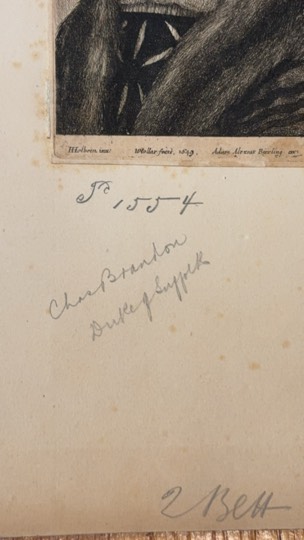 HHolbein inv: WHollar fecit, 1649, Adam Alexius Bierling exc:
1554
Chas Brandon
Duke of Suffolk
2 Bett